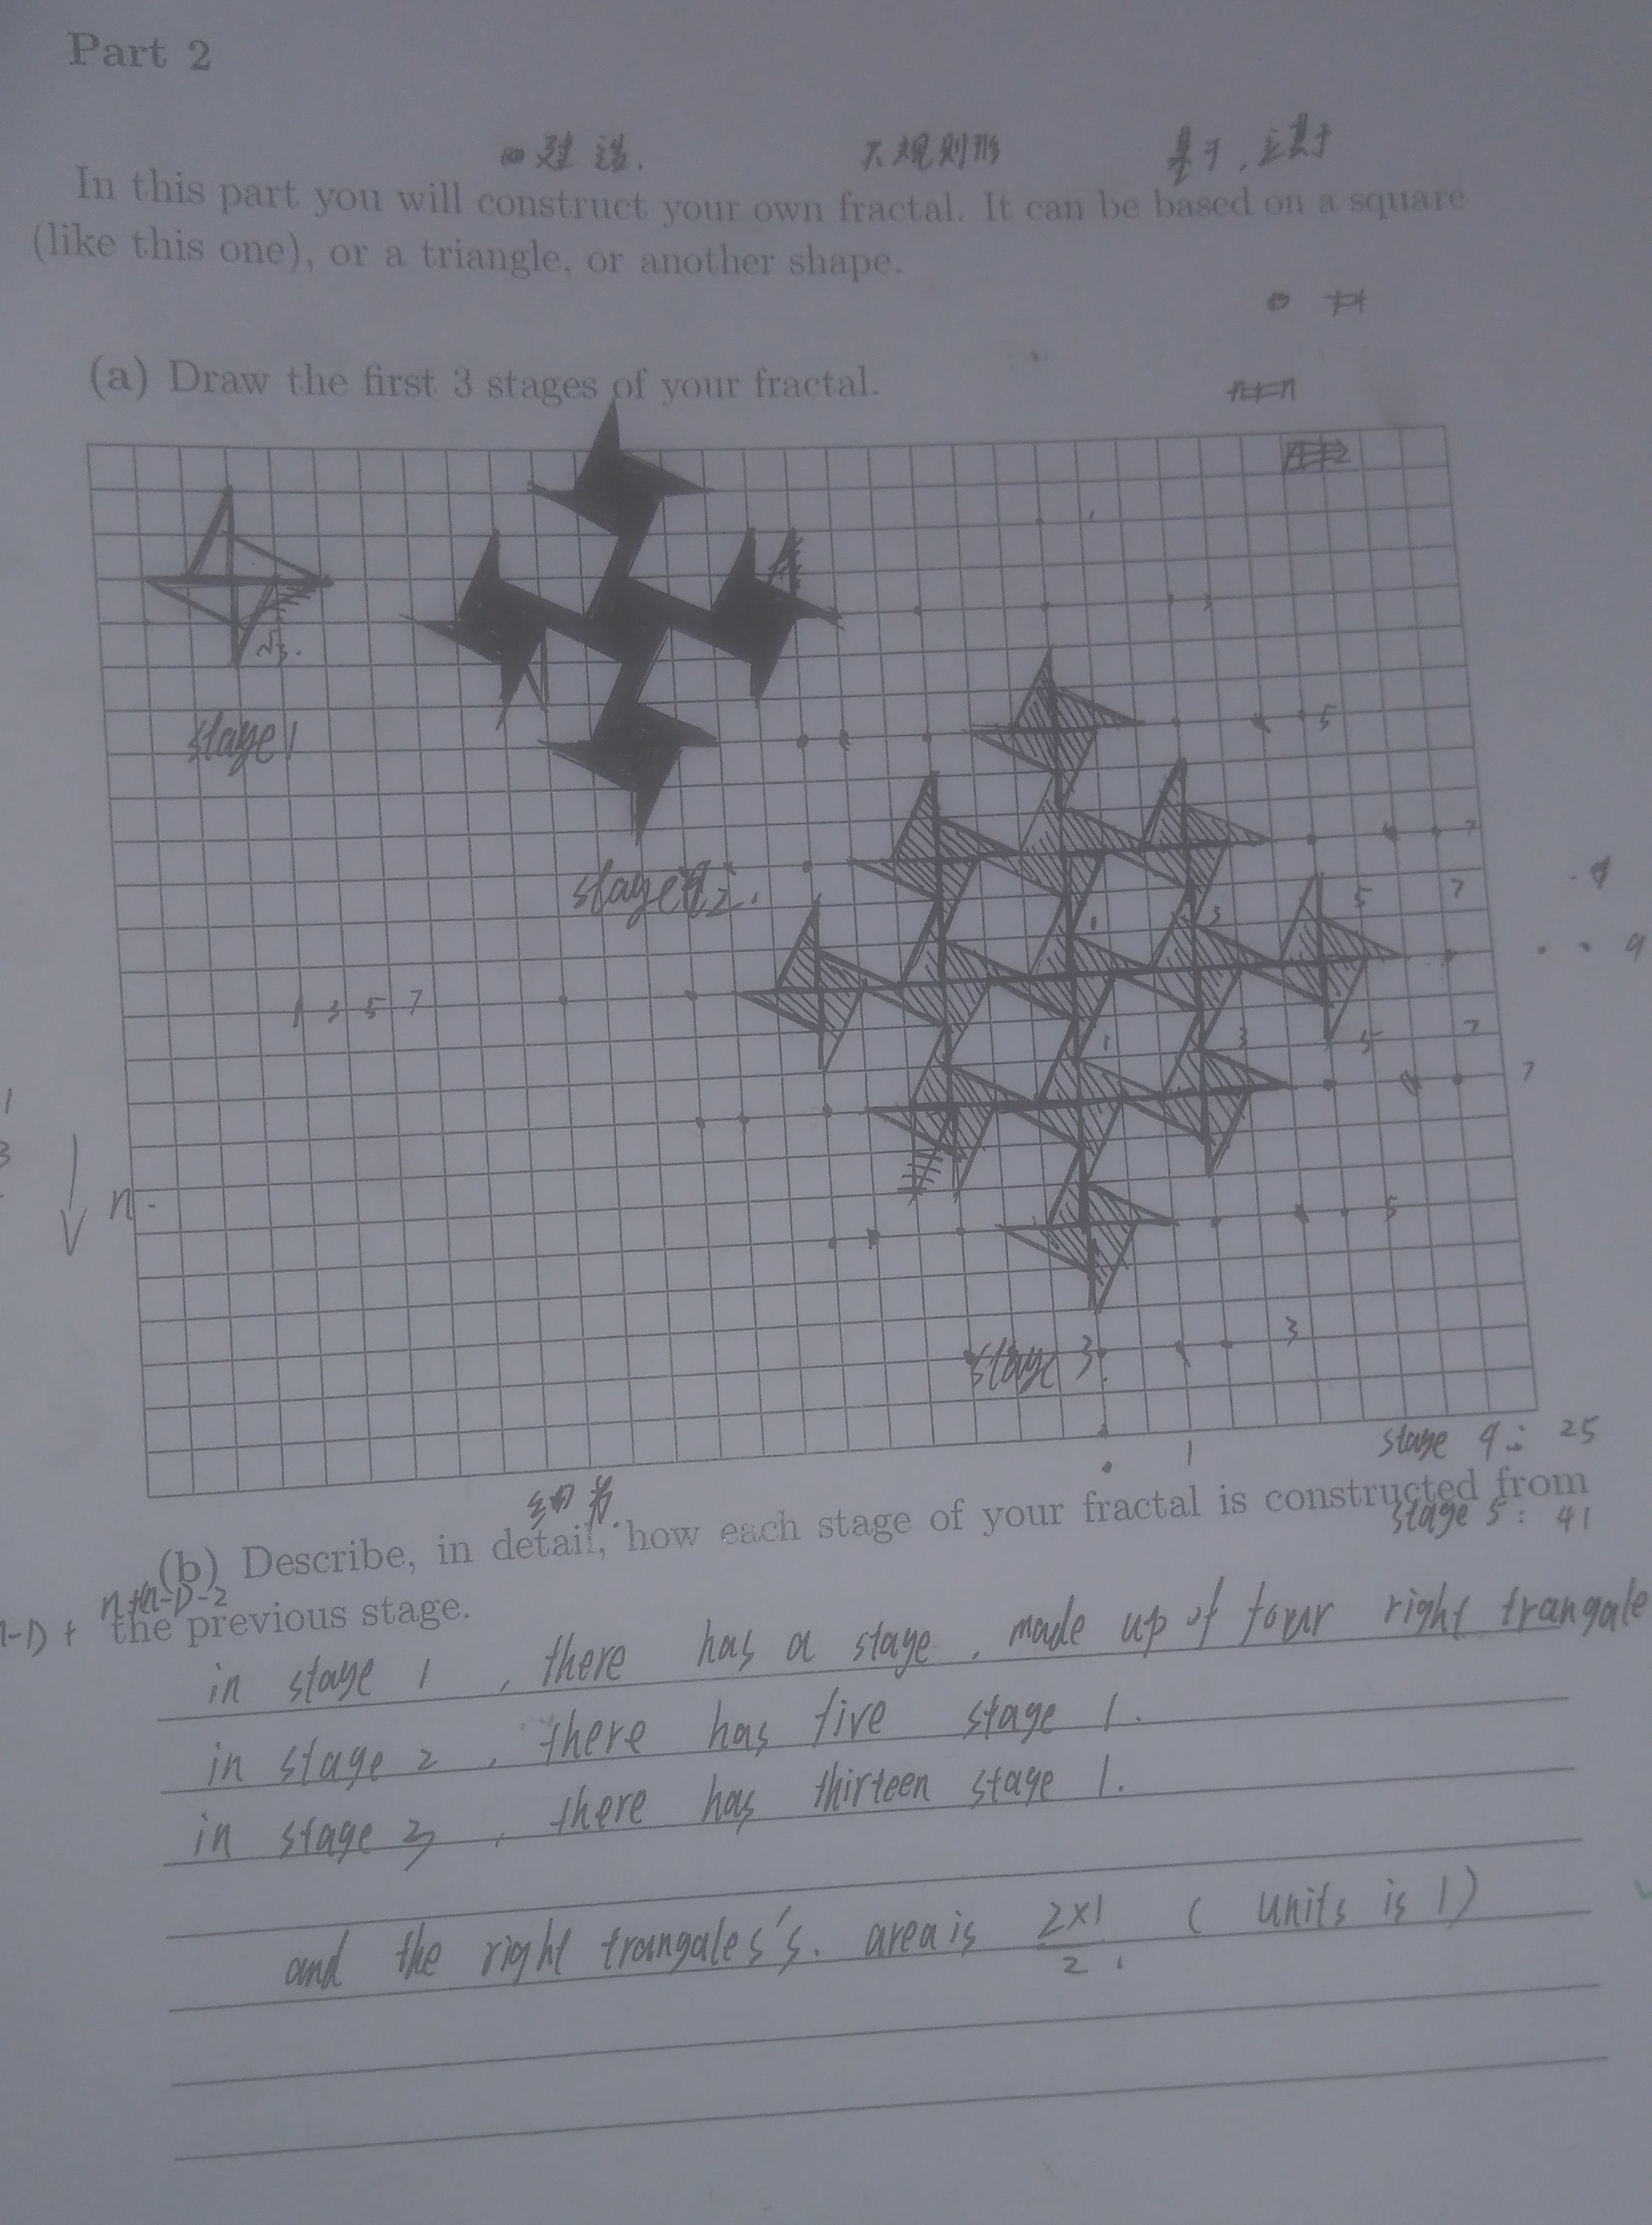 Part 2
建造.
不规则形
基于,
In this part you will construct your own fractal. It can be based on a square
(like this one), or a triangle, or another shape.
(a) Draw the first 3 stages of your fractal.
√3.
stage 1
5
7
stage 2.
5 7
3
9
1 3 5 7
1 3 5 7
7
1
3
n.
5
3
stage 3.
1
stage 4: 25
细节.
(b) Describe, in detail, how each stage of your fractal is constructed from
stage 5: 41
n+(n-1)-2
the previous stage.
in stage 1, there has a stage, made up of four right trangale
in stage 2, there has five stage 1.
in stage 3, there has thirteen stage 1.
and the right trangales's. area is 2×1/2. ( units is 1)